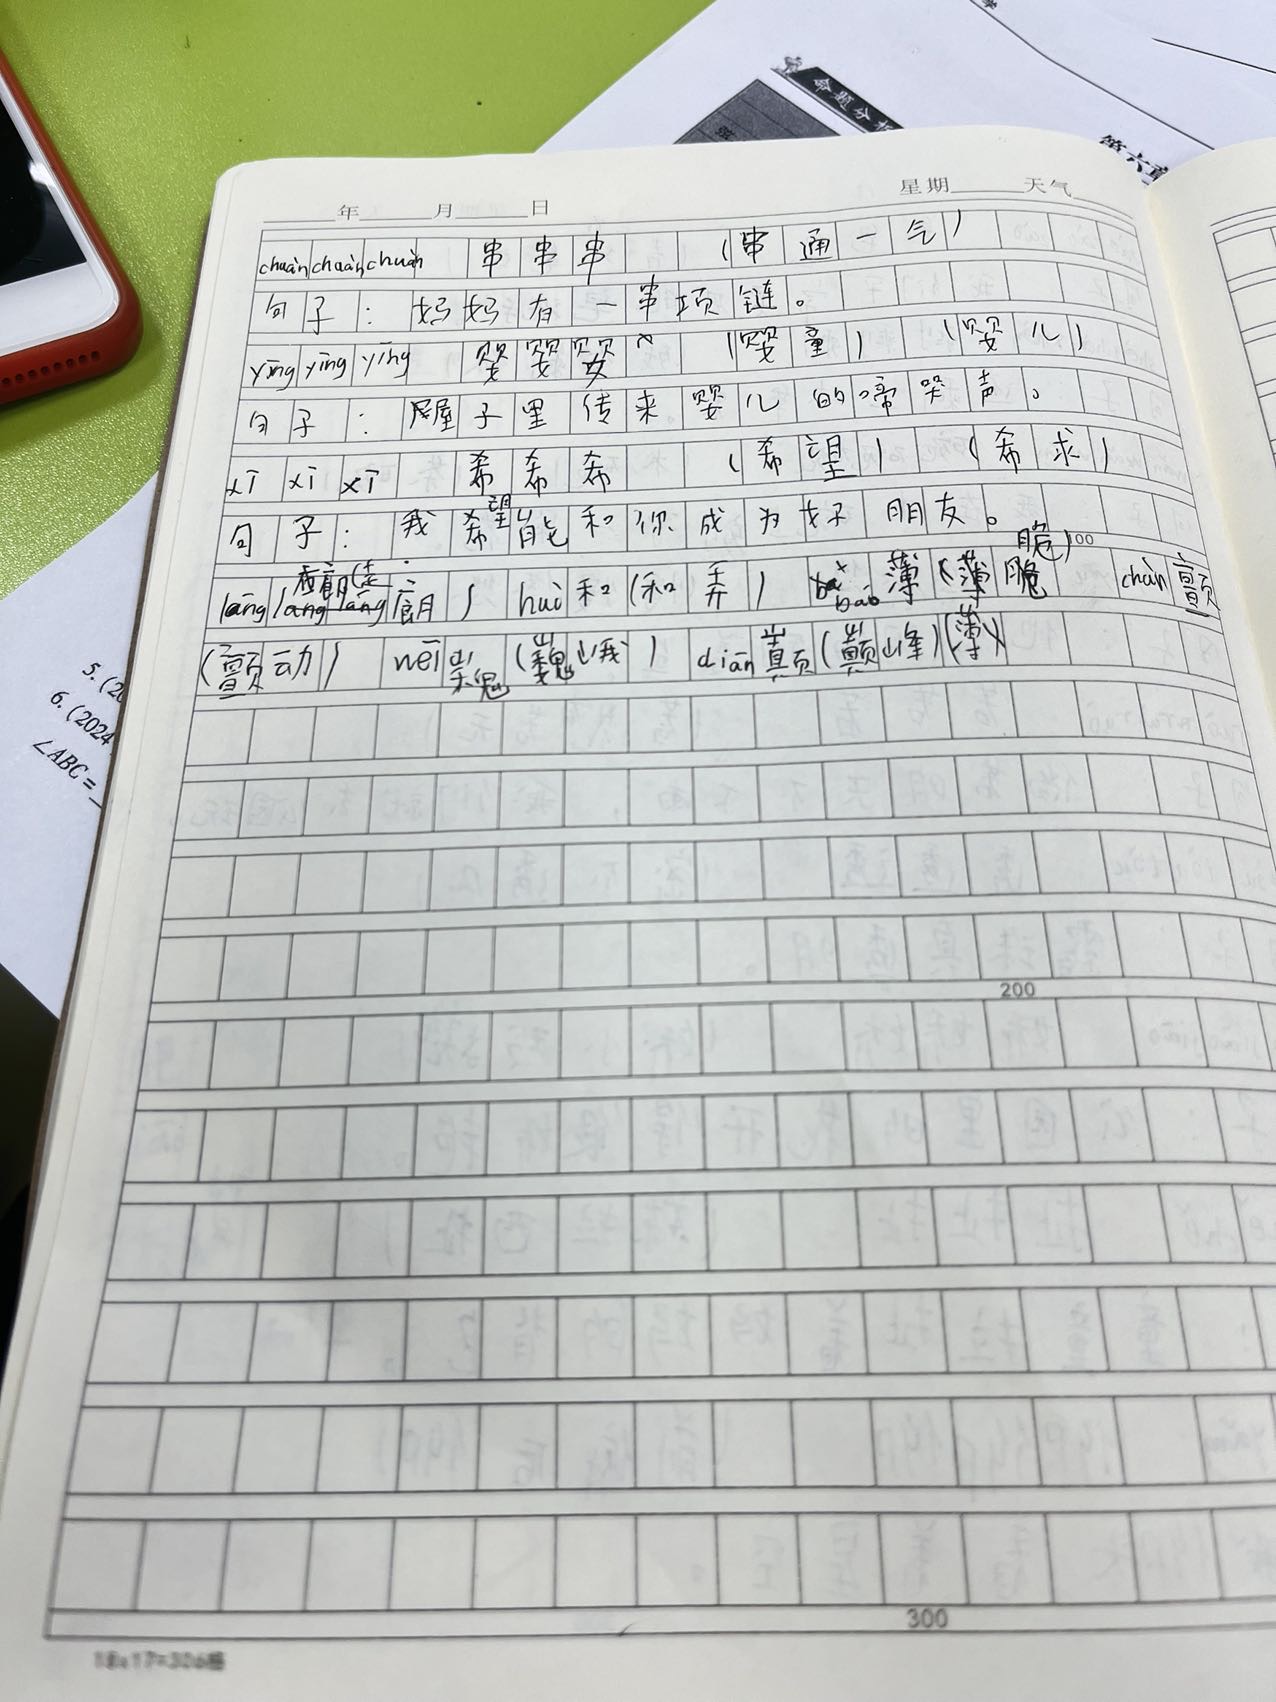 命题分析
第六章
年 月 日 星期 天气
chuàn chuàn chuàn 串 串 串 (串通一气)
句子: 妈妈有一串项链。
yīng yīng yīng 婴 婴 婴 (婴童) (婴儿)
句子: 屋子里传来婴儿的啼哭声。
xī xī xī 希 希 希 (希望) (希求)
句子: 我希望能和你成为好朋友。
100
láng láng láng 廊 (走廊) huò 和 (和弄) báo 薄 (薄脆) 脆) chàn 颤
(颤动) wēi 巍 (巍峨) diān 巅 (巅峰) (薄)
5. (20
6. (2024
∠ABC =
200
300
18x17=306格